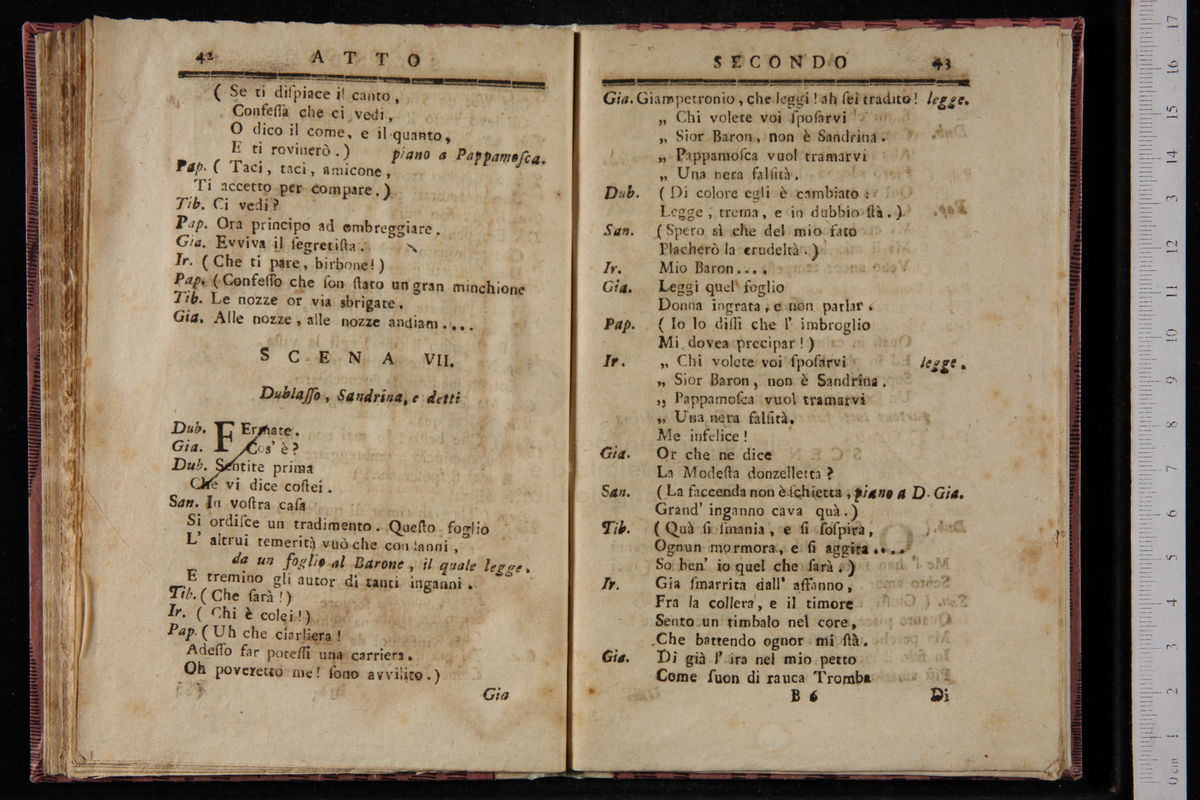 42 ATTO
( Se ti diſpiace il canto ,
Confeſſa che ci vedi ,
O dico il come, e il quanto ,
E ti rovinerò . ) piano a Pappamoſca.
Pap. ( Taci , taci , amicone ,
Ti accetto per compare . )
Tib. Ci vedi ?
Pap. Ora principo ad ombreggiare .
Gia. Evviva il ſegretiſta .
Ir. ( Che ti pare , birbone ! )
Pap. ( Confeſſo che ſon ſtato un gran minchione
Tib. Le nozze or via sbrigate .
Gia. Alle nozze , alle nozze andiam . . . .
SCENA VII.
Dublaſſo , Sandrina, e detti
Dub. FErmate .
Gia. Cos' è ?
Dub. Sentite prima
Che vi dice coſtei .
San. In voſtra caſa
Si ordiſce un tradimento . Queſto foglio
L' altrui temerità vuò che condanni ,
da un foglio al Barone , il quale legge .
E tremino gli autor di tanti inganni .
Tib. ( Che ſarà ! )
Ir. ( Chi è colei ! )
Pap. ( Uh che ciarliera !
Adeſſo far poteſſi una carriera .
Oh poveretto me ! ſono avvilito . )
Gia
SECONDO 43
Gia. Giampetronio , che leggi ! ah ſei tradito ! legge.
„ Chi volete voi ſpoſarvi
„ Sior Baron , non è Sandrina .
„ Pappamoſca vuol tramarvi
„ Una nera falſità .
Dub. ( Di colore egli è cambiato :
Legge , trema , e in dubbio ſtà . )
San. ( Spero sì che del mio fato
Placherò la crudeltà . )
Ir. Mio Baron . . . .
Gia. Leggi quel foglio
Donna ingrata , e non parlar .
Pap. ( Io lo diſſi che l' imbroglio
Mi dovea precipar ! )
Ir. „ Chi volete voi ſpoſarvi legge .
„ Sior Baron , non è Sandrina .
„ Pappamoſca vuol tramarvi
„ Una nera falſità.
Me infelice !
Gia. Or che ne dice
La Modeſta donzelletta ?
San. ( La faccenda non è ſchietta , piano a D. Gia.
Grand' inganno cava quà . )
Tib. ( Quà ſi ſmania , e ſi ſoſpira ,
Ognun mormora , e ſi aggita . . . .
So ben' io quel che ſarà . )
Ir. Gia ſmarrita dall' affanno ,
Fra la collera , e il timore
Sento un timbalo nel core ,
Che battendo ognor mi ſtà .
Gia. Di già l' ira nel mio petto
Come ſuon di rauca Tromba
B 6 Di
0 cm 1 2 3 4 5 6 7 8 9 10 11 12 13 14 15 16 17